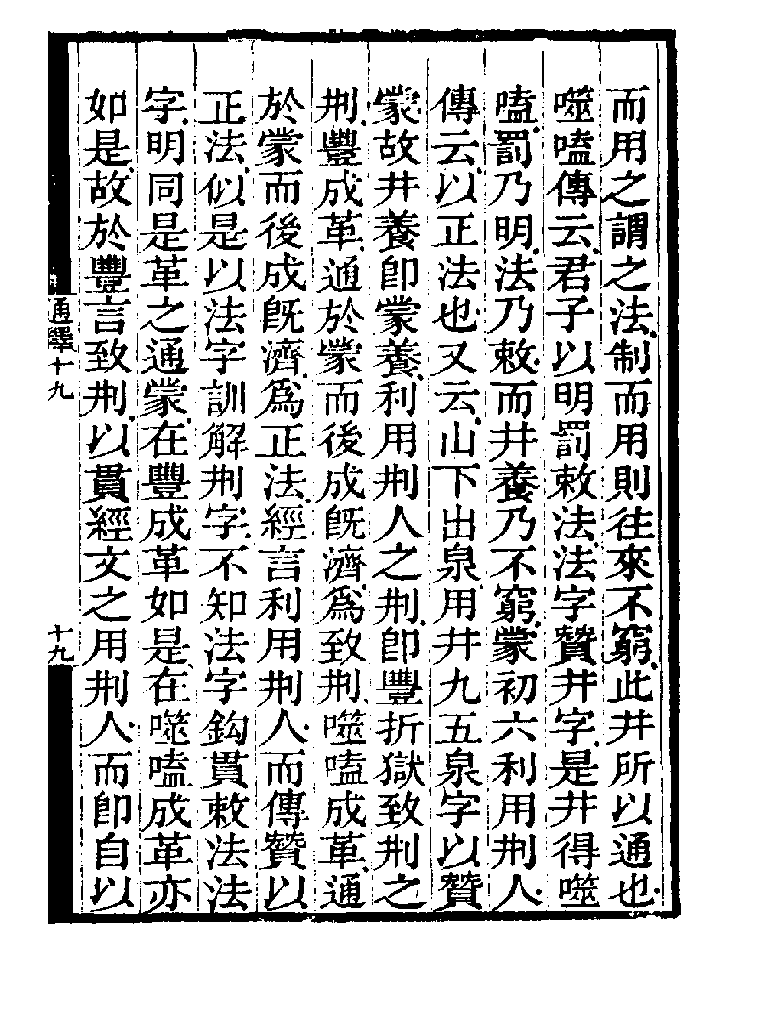 而用之謂之法制而用則往來不窮此井所以通也
噬嗑傳云君子以明罰敕法法字贊井字是井得噬
嗑罰乃明法乃敕而井養乃不窮蒙初六利用刑人
傳云以正法也又云山下出泉用井九五泉字以贊
蒙故井養卽蒙養利用刑人之刑卽豐折獄致刑之
刑豐成革通於蒙而後成旣濟爲致刑噬嗑成革通
於蒙而後成旣濟爲正法經言利用刑人而傳贊以
正法似是以法字訓解刑字不知法字鈎貫敕法法
字明同是革之通蒙在豐成革如是在噬嗑成革亦
如是故於豐言致刑以貫經文之用刑人而卽自以
通釋十九
十九